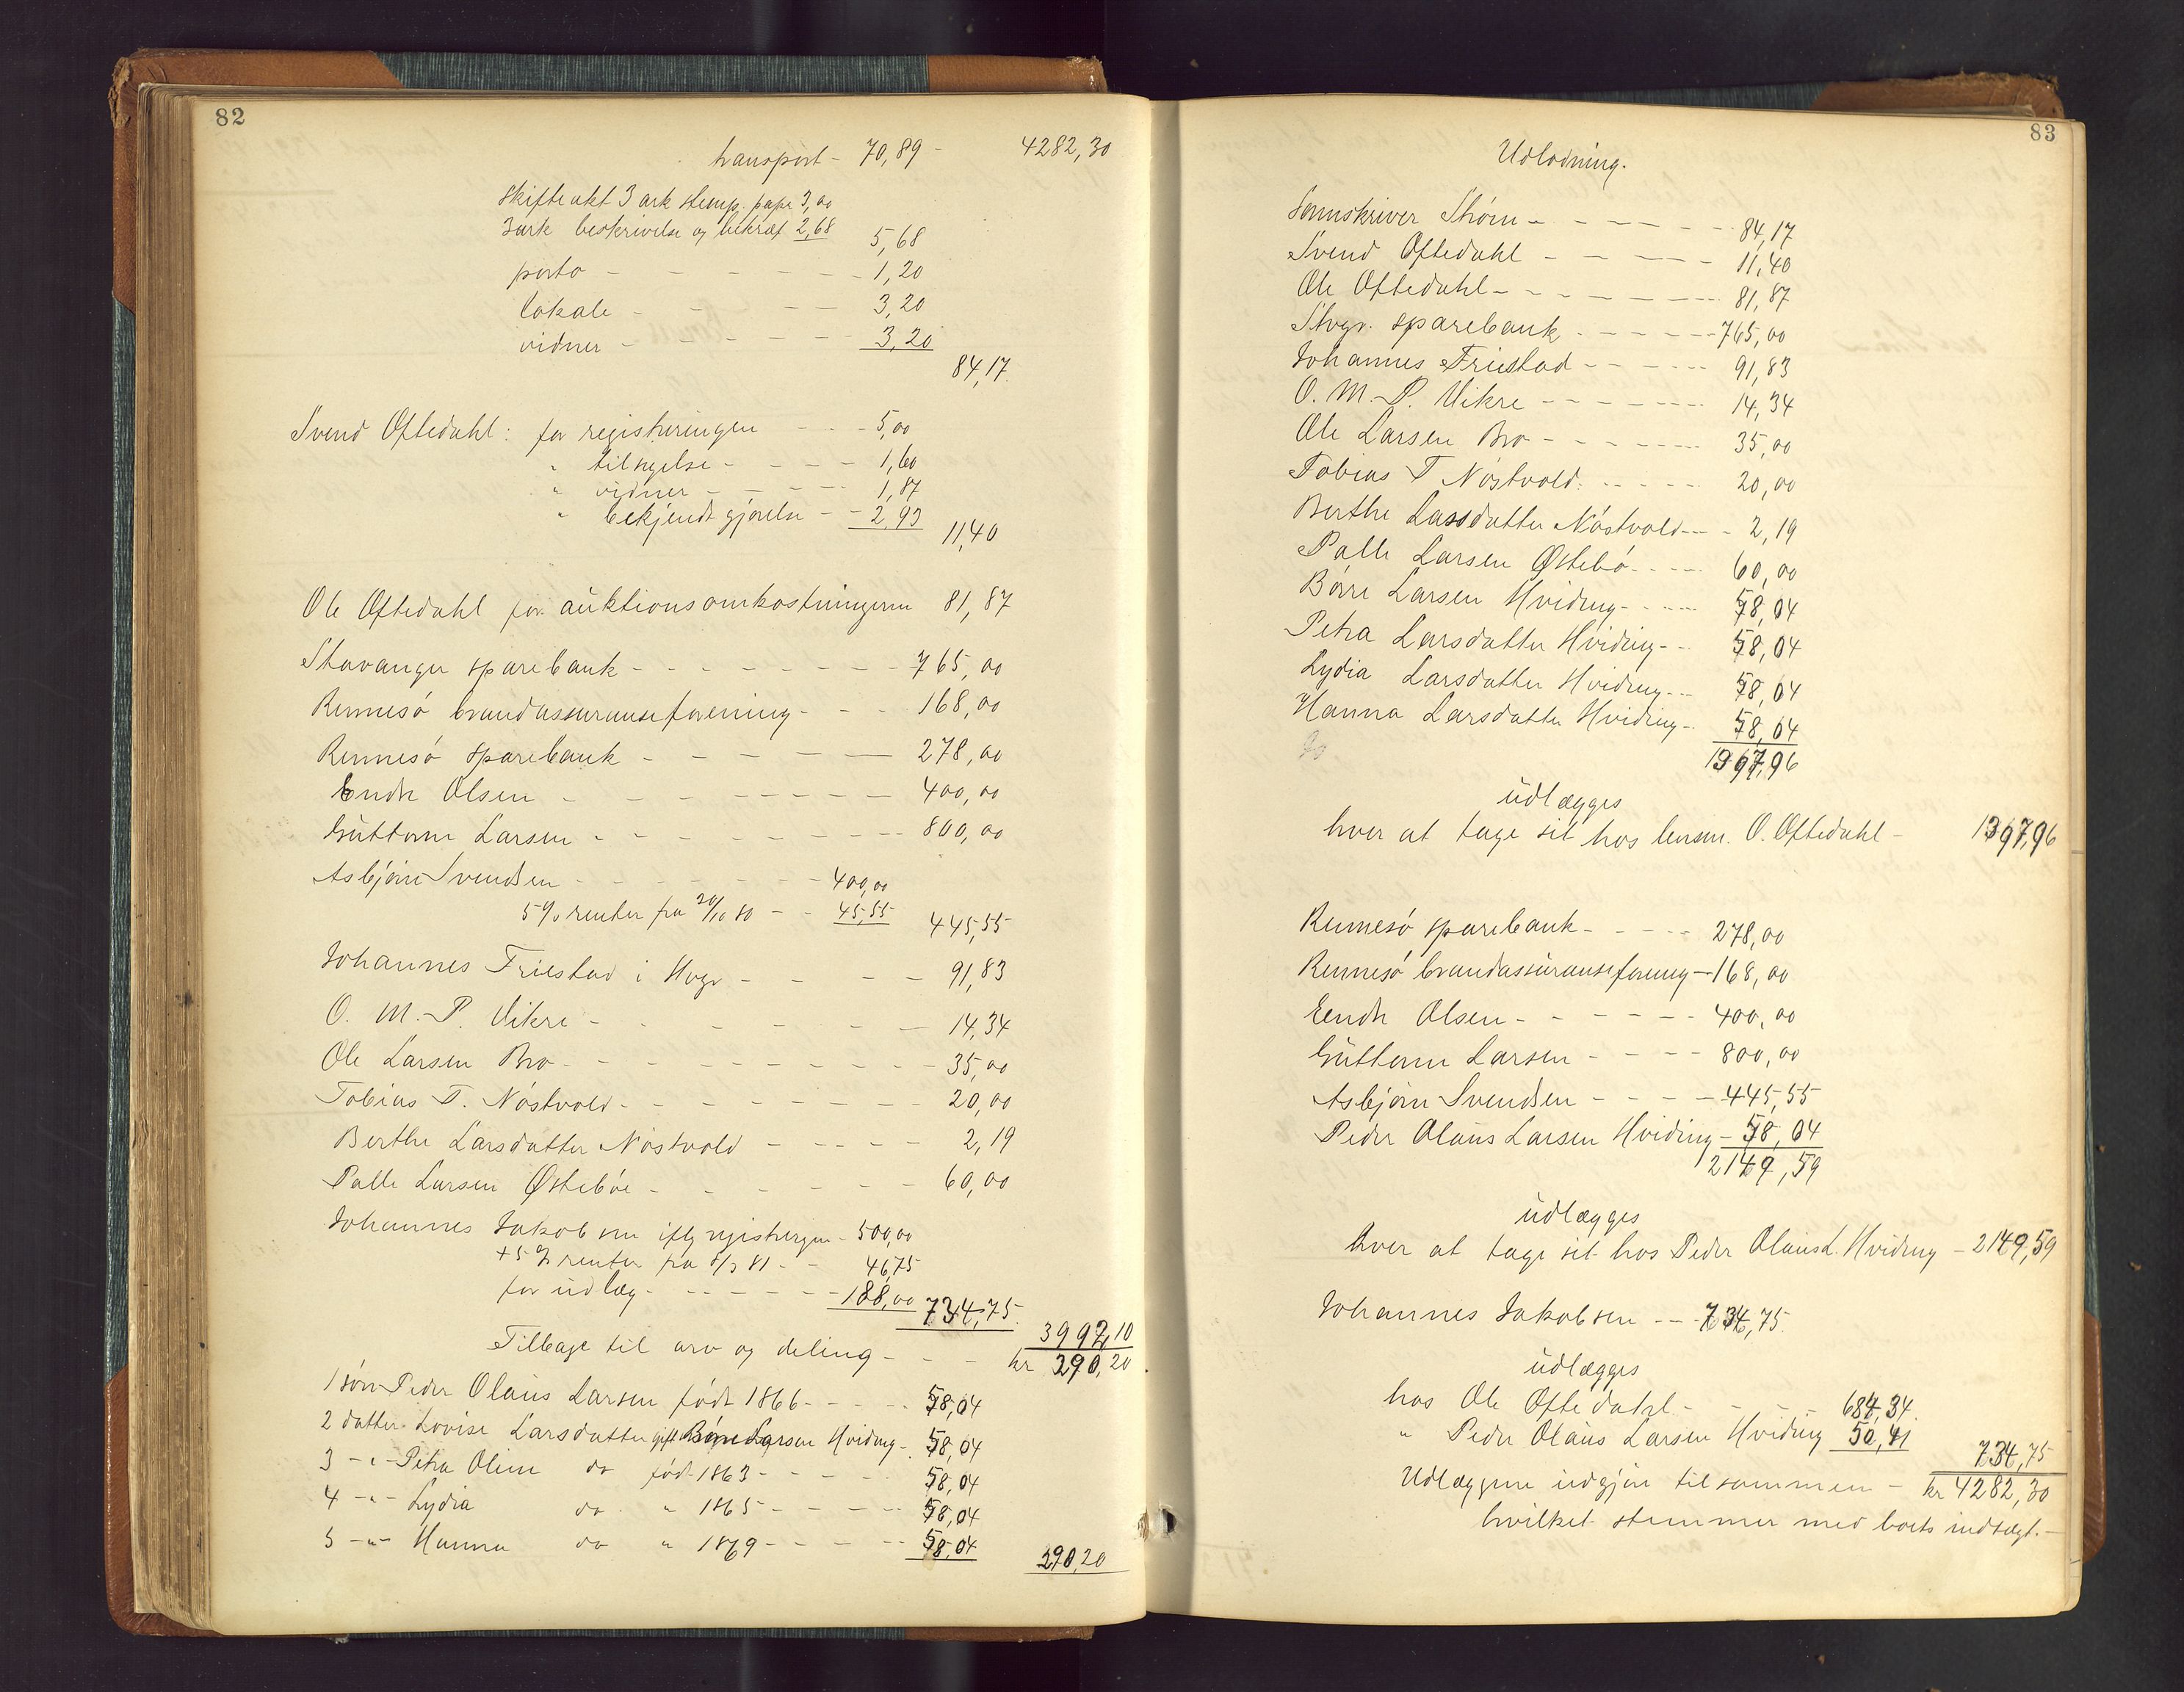 82
transport - 70,89 - 4282,30
skifteakt 3 ark stemp. papr 3,00
3 ark beskrivelse og bekræf 2,68 5,68
porto - - - - - - 1,20
lokale - - - - 3,20
vidner - - - - - 3,20
84,17
Svend Oftedahl: for registreringen - - - 5,00
" tilsigelse - - - - 1,60
" vidner - - - - 1,87
" bekjendtgjørelse - - 2,93
11,40
Ole Oftedahl for auktionsomkostningerne 81,87
Stavanger sparebank - - - - - - - - 765,00
Rennesø brandassuranseforening - - - 168,00
Rennesø sparebank - - - - - 278,00
Endre Olsen - - - - - - - - 400,00
Guttorm Larsen - - - - - - - - 800,00
Asbjørn Svendsen - - - - - - 400,00
5% renter fra 20/10 80 - - 45,55 445,55
Johannes Friestad i Hvgr - - - - 91,83
O. M. P. Vikre - - - - - - - 14,34
Ole Larsen Bro - - - - - - - - 35,00
Tobias T. Nøstvold - - - - - - - - 20,00
Berthe Larsdatter Nøstvold - - - - 2,19
Palle Larsen Østebøe - - - - - - 60,00
Johannes Jakobsen iflg registreringen - 500,00
+ 5% renter fra 5/3 81 - - 46,75
for udlæg - - - - - - 188,00 734,75
3992,10
Tilbage til arv og deling - - - kr 290,20
1 søn Peder Olaus Larsen født 1866 - - - - 58,04
2 datter Lovise Larsdatter gift Børre Larsen Hviding - 58,04
3 - " - Petra Oline do født 1863 - - - - 58,04
4 - " - Lydia do. " 1865 - - - - 58,04
5 - " - Hanna do " 1869 - - - - 58,04
290,20
83
Udlodning.
Sorenskriver Strøm - - - - - - 84,17
Svend Oftedahl - - - - - 11,40
Ole Oftedahl - - - - - - - 81,87
Stvgr. sparebank - - - - - 765,00
Johannes Friestad - - - - - 91,83
O. M. P. Vikre - - - - - - - 14,34
Ole Larsen Bro - - - - - - - 35,00
Tobias T Nøstvold - - - - - 20,00
Berthe Larsdatter Nøstvold - - - 2,19
Palle Larsen Østebø - - - - 60,00
Børre Larsen Hviding - - - - 58,04
Petra Larsdatter Hviding - - 58,04
Lydia Larsdatter Hviding - - - 58,04
Hanna Larsdatter Hviding - - 58,04
1397,96
udlægges
hver at tage sit hos lensm. O. Oftedahl - 1397,96
Rennesø sparebank - - - - - 278,00
Rennesø brandassuranseforening - 168,00
Endre Olsen - - - - - - 400,00
Guttorm Larsen - - - - 800,00
Asbjørn Svendsen - - - - 445,55
Peder Olaus Larsen Hviding - 58,04
2149,59
udlægges
hver at tage sit hos Peder Olaus L. Hviding - 2149,59
Johannes Jakobsen - - - 734,75
udlægges
hos Ole Oftedahl - - - - 684,34
" Peder Olaus Larsen Hviding 50,41
734,75
Udlæggene udgjør tilsammen - kr 4282,30
hvilket stemmer med boets indtægt. -